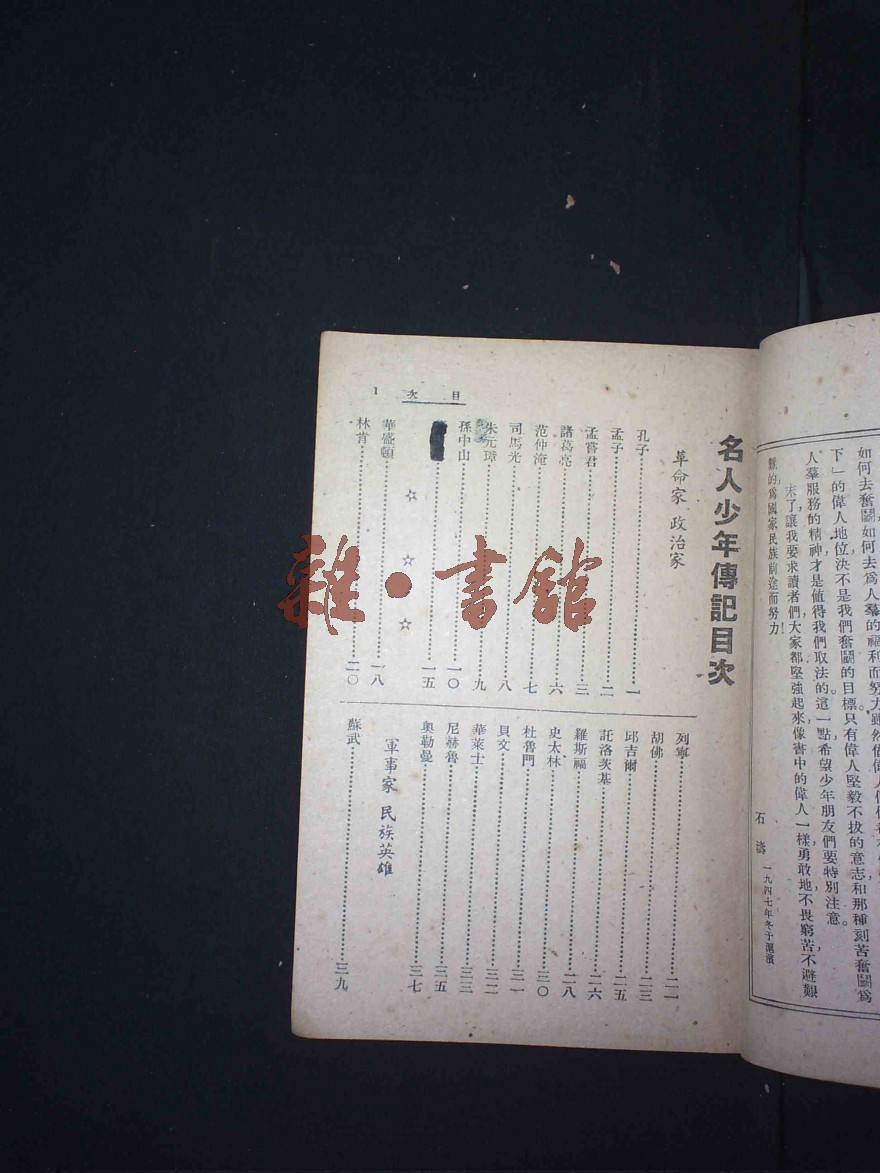 如何去奮鬭,如何去爲人羣的福利而努力
下」的偉人地位決不是我們奮鬭的目標。只有偉人堅毅不拔的意志和那種刻苦奮鬭爲
人羣服務的精神,才是值得我們取法的。這一點希望少年朋友們要特別注意。
末了,讓我要求讀者們大家都堅強起來,像書中的偉人一樣勇敢地不畏窮苦,不避艱
難的爲國家民族前途而努力!
石濤 一九四七年冬于滬濱
名人少年傳記目次
革命家 政治家
孔子 一
孟子 二
孟嘗君 三
諸葛亮 六
范仲淹 七
司馬光 八
朱元璋 九
孫中山 一〇
一五
☆ ☆ ☆
華盛頓 一八
林肯 二〇
列寧 二一
胡佛 二三
邱吉爾 二五
託洛茨基 二六
羅斯福 二八
史太林 三〇
杜魯門 三一
貝文 三二
華萊士 三三
尼赫魯 三五
奧勒曼 三七
軍事家 民族英雄
蘇武 三九
目次 1
雜·書館